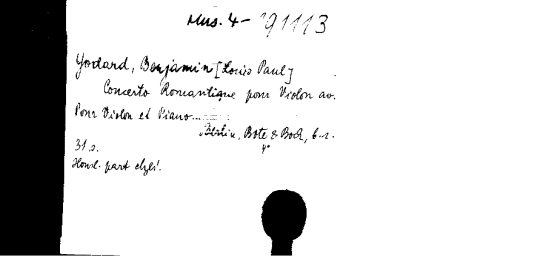 Mus. 4- 91113
Godard, Benjamin [Louis Paul]
Concerto Romantique pour Violon av.
Pour Violon et Piano...
Berlin, Bote & Bock, b.r.
4°
31 s.
part